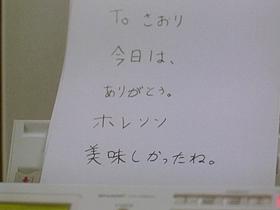 To さおり
今日は、
ありがとう。
ホレソソ
美味しかったね。